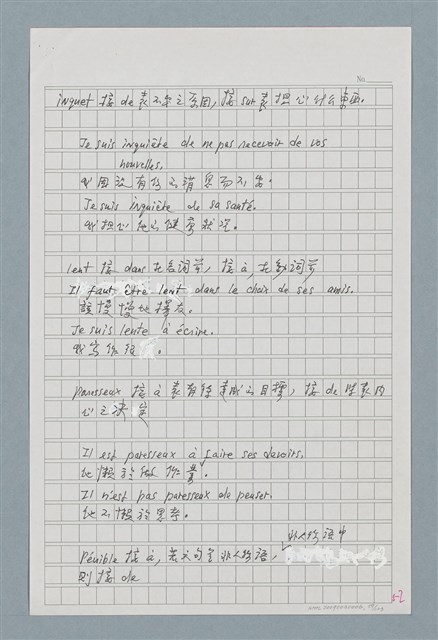 No.
inquet 接 de 表不安之原因, 接 sur 表 担心什么東西。
Je suis inquiète de ne pas recevoir de vos
nouvelles.
我因沒有你的消息而不安。
Je suis inquiète de sa santé.
我担心她的健康狀況。
lent 接 dans 在名詞前, 接 à, 在動詞前
Il faut être lent dans le choix de ses amis.
該慢慢地擇友。
Je suis lente à écrire.
我寫作很。
paresseux 接 à 表有待達成的目標, 接 de 時表內
心之決定
Il est paresseux à faire ses devoirs.
他懶於做作業。
Il n'est pas paresseux de penser.
他不懶於思考。
非人称语中
Pénible 接 à, 若大句是非人称语,
則接 de
6-2